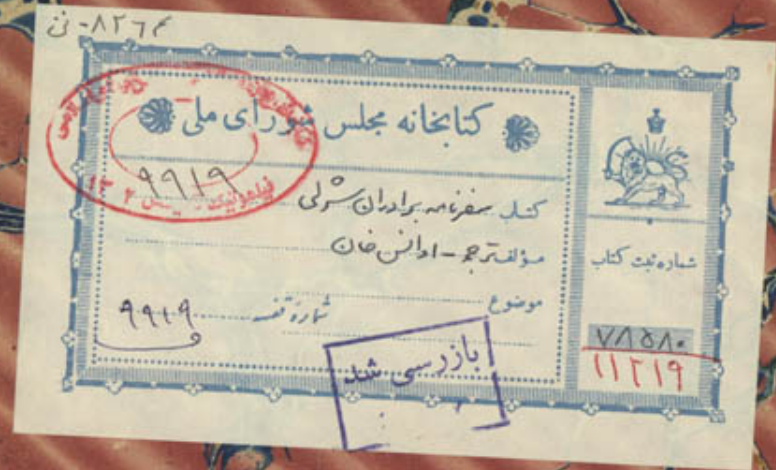 ۸۲۶۴- فن
کتابخانه مجلس شورای ملی
۹۹۱۹
کتاب سفرنامه برادران شرلی
مؤلف ترجمه - اوانس خان
موضوع
شماره قفسه ۹۹۱۹
ف
شماره ثبت کتاب
۷۸۵۸۰
۱۱۲۱۹
بازرسی شد